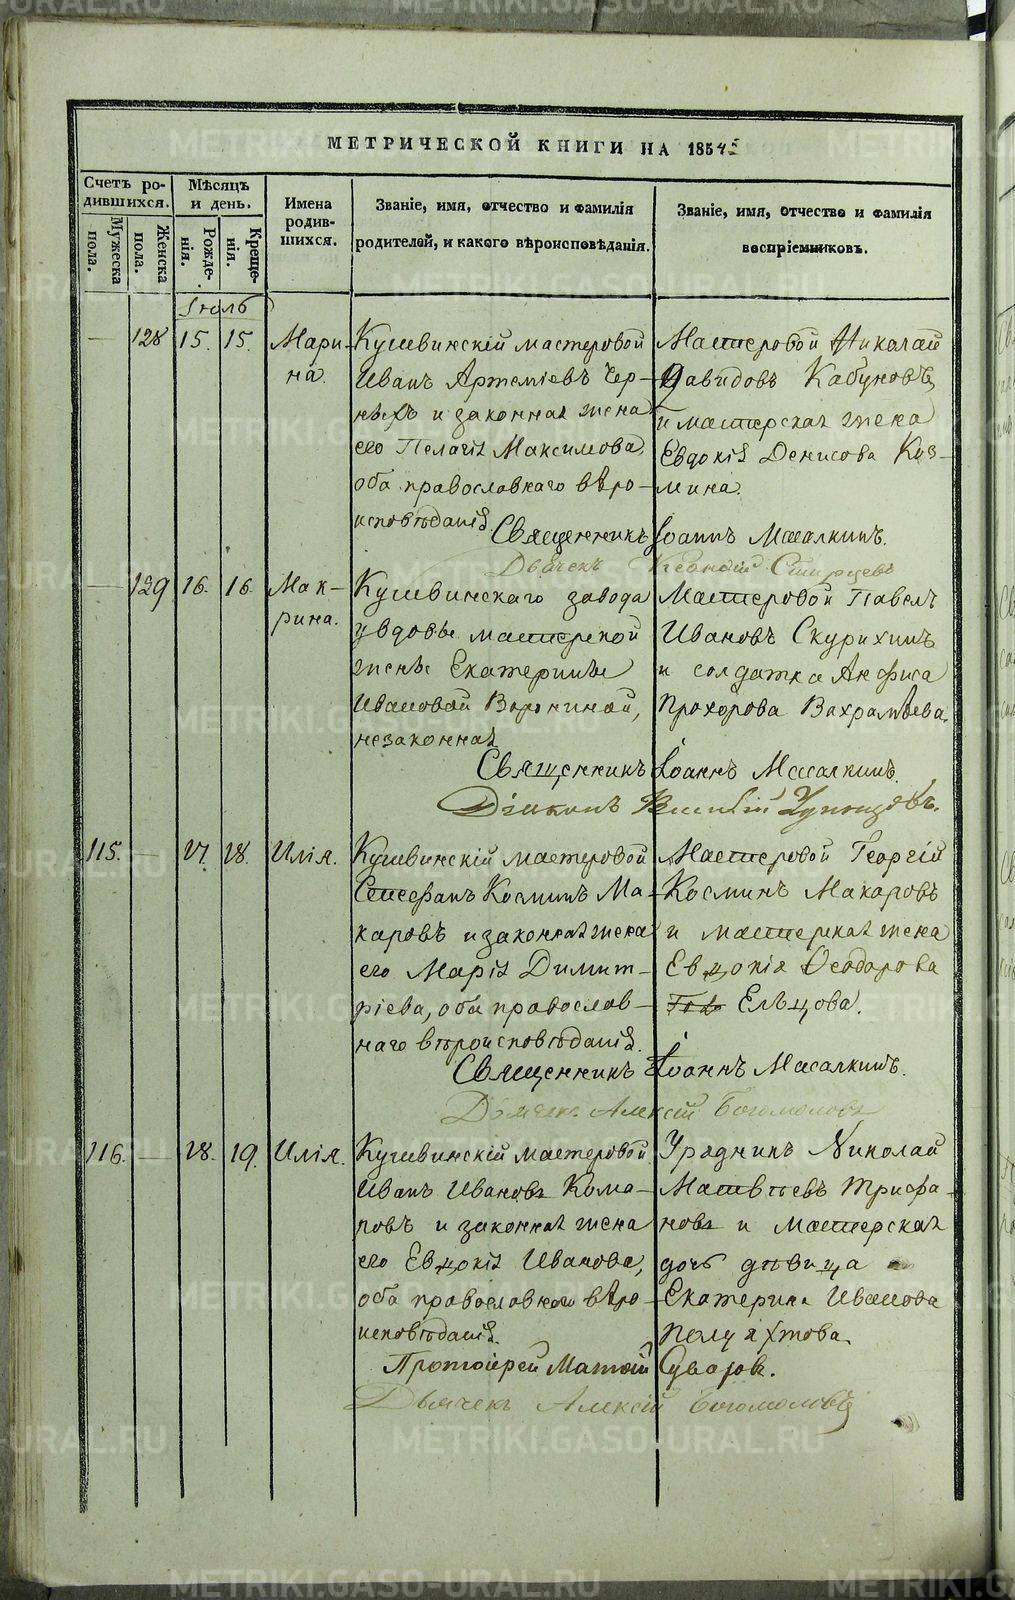 МЕТРИЧЕСКОЙ КНИГИ НА 1854
Счетъ ро-
дившихся.
Мужеска
пола.
Женска
пола.
Мѣсяцъ
и день.
Рожде-
нія.
Креще-
нія.
Имена
родив-
шихся.
Званіе, имя, отчество и фамилія
родителей, и какого вѣроисповѣданія.
Званіе, имя, отчество и фамилія
воспріемниковъ.
Іюль
128 15. 15. Мари-
на.
Кушвинскій мастеровой
Иванъ Артеміевъ Чер-
ныхъ и законная жена
его Пелагія Максимова,
оба православнаго вѣро-
исповѣданія.
Мастеровой Николай
Давидовъ Кабуновъ,
и мастерская жена
Евдокія Денисова Коз-
мина.
Священникъ Іоаннъ Масалкинъ.
Дьячекъ
129 16. 16. Мак-
рина.
Кушвинскаго завода
у вдовы мастерской
жены Екатерины
Ивановой Ворониной,
незаконная
Мастеровой Павелъ
Ивановъ Скурихинъ
и солдатка Анфиса
Прохорова Вахрамѣева.
Священникъ Іоаннъ Масалкинъ.
Діаконъ Василій
115. 17. 18. Илія.
Кушвинскій мастеровой
Стефанъ Косминъ Ма-
каровъ и законная жена
его Марія Димит-
ріева, оба православ-
наго вѣроисповѣданія.
Мастеровой Георгій
Косминъ Макаровъ
и мастерская жена
Евдокія Ѳеодорова
Ельцова.
Священникъ Іоаннъ Масалкинъ.
Дьячекъ Алексій Богомоловъ
116. 18. 19. Илія.
Кушвинскій мастеровой
Иванъ Ивановъ Кома-
ровъ и законная жена
его Евдокія Иванова,
оба православнаго вѣро-
исповѣданія.
Урядникъ Николай
Матвѣевъ Трифа-
новъ и мастерская
дочь дѣвица
Екатерина Иванова
Полуяхтова.
Протоіерей Матѳій Суворов.
Дьячекъ Алексій Богомоловъ
METRIKI.GASO-URAL.RU